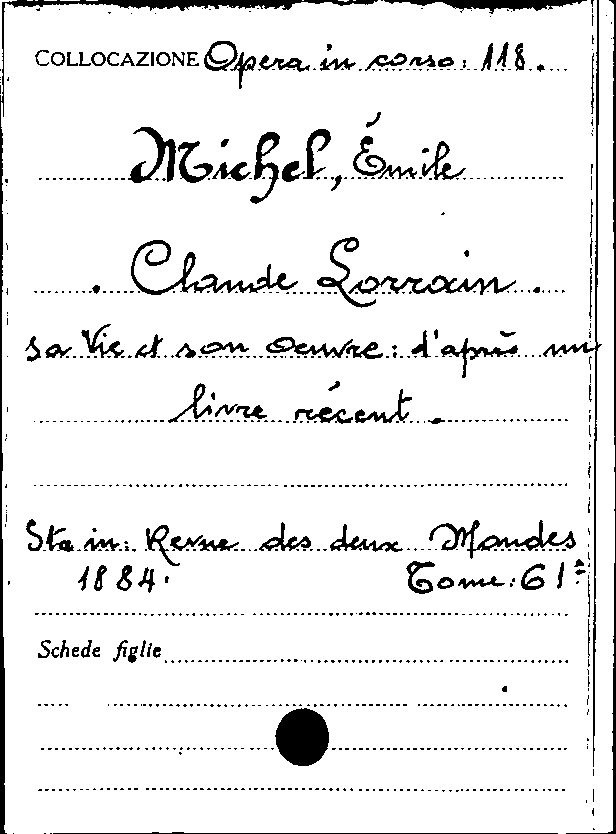 COLLOCAZIONE Opera in corso: 118.
Michel, Émile
. Claude Lorrain .
sa Vie et son Oeuvre: d'après un
livre récent .
Sta in: Revue des deux Mondes
1884. Tome: 61º
Schede figlie